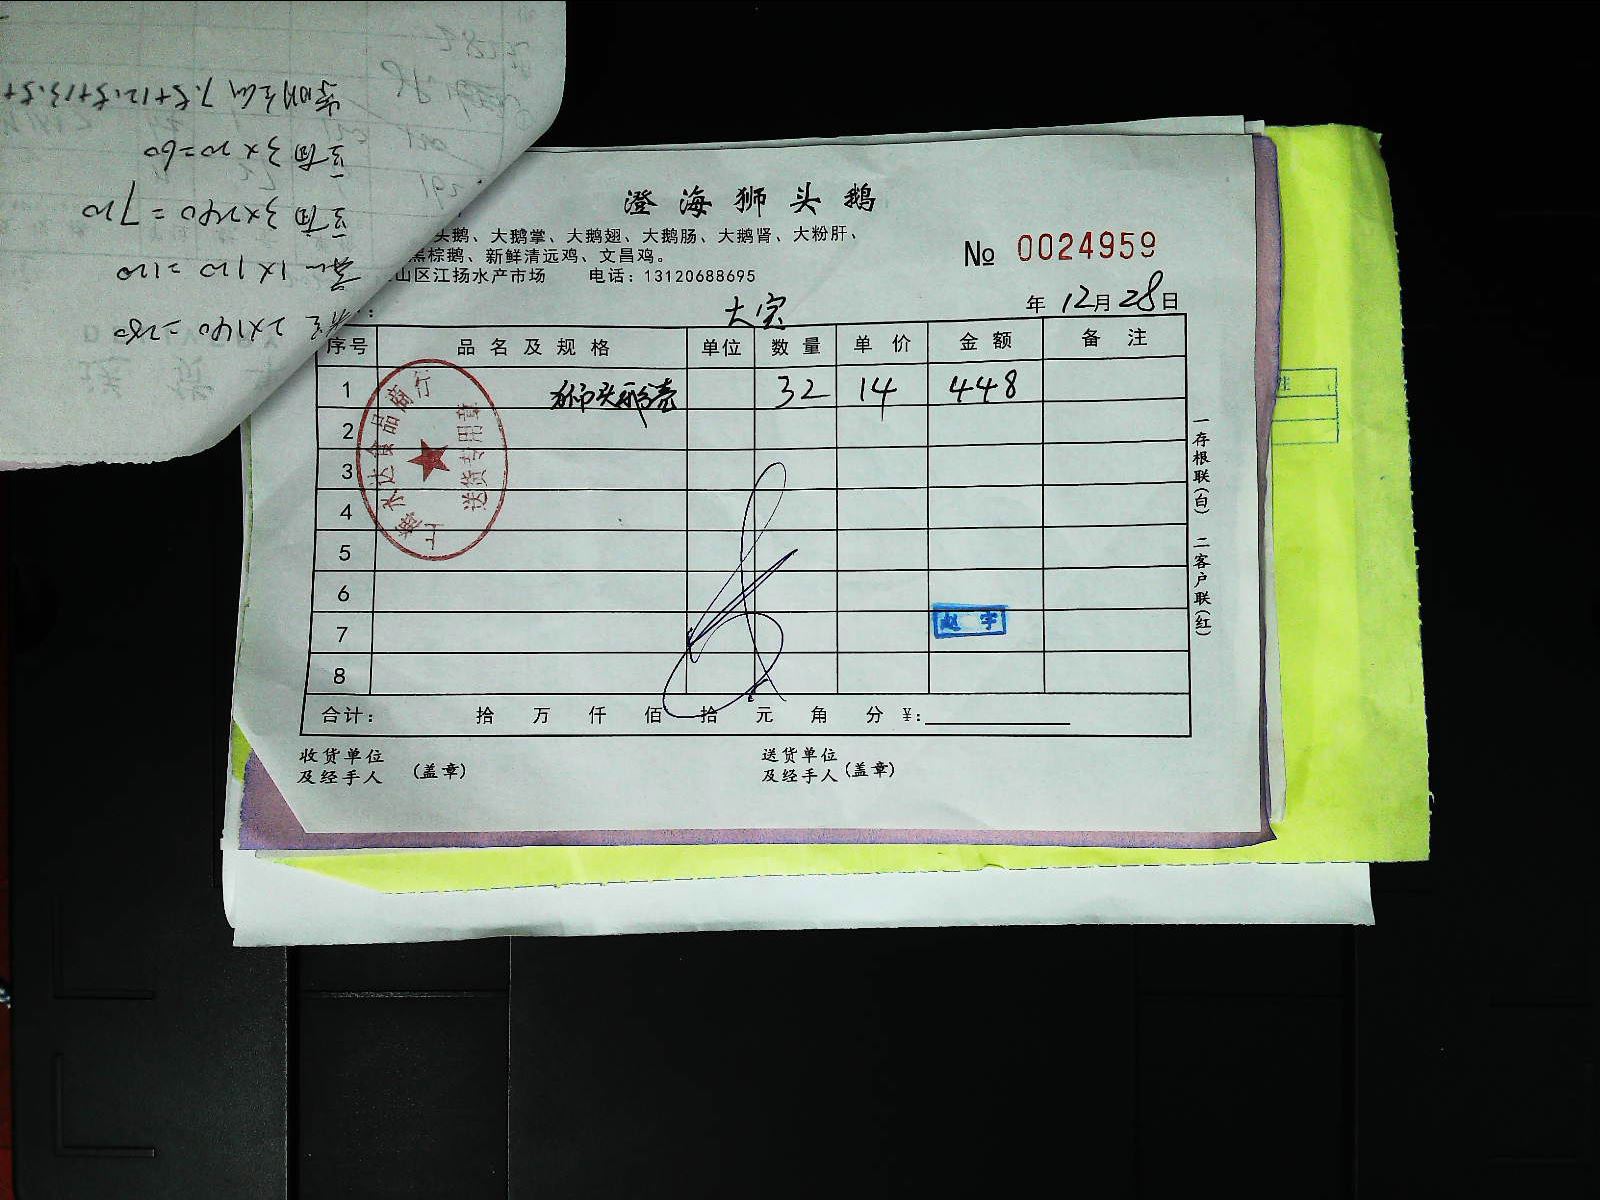 澄海狮头鹅
头鹅、大鹅掌、大鹅翅、大鹅肠、大鹅肾、大粉肝、
黑棕鹅、新鲜清远鸡、文昌鸡。
山区江扬水产市场 电话：13120688695
№ 0024959
大宗
年 12月28日
序号 品名及规格 单位 数量 单价 金额 备注
1 狮头鹅壳 32 14 448
2
3
4
5
6
7
8
上海水达食品商行
送货专用章
赵宇
合计： 拾 万 仟 佰 拾 元 角 分 ¥:
收货单位
及经手人 (盖章)
送货单位
及经手人 (盖章)
一存根联(白) 二客户联(红)
2×140=280
1×120=120
3×240=720
3×20=60
7.5+12.5+13.5+